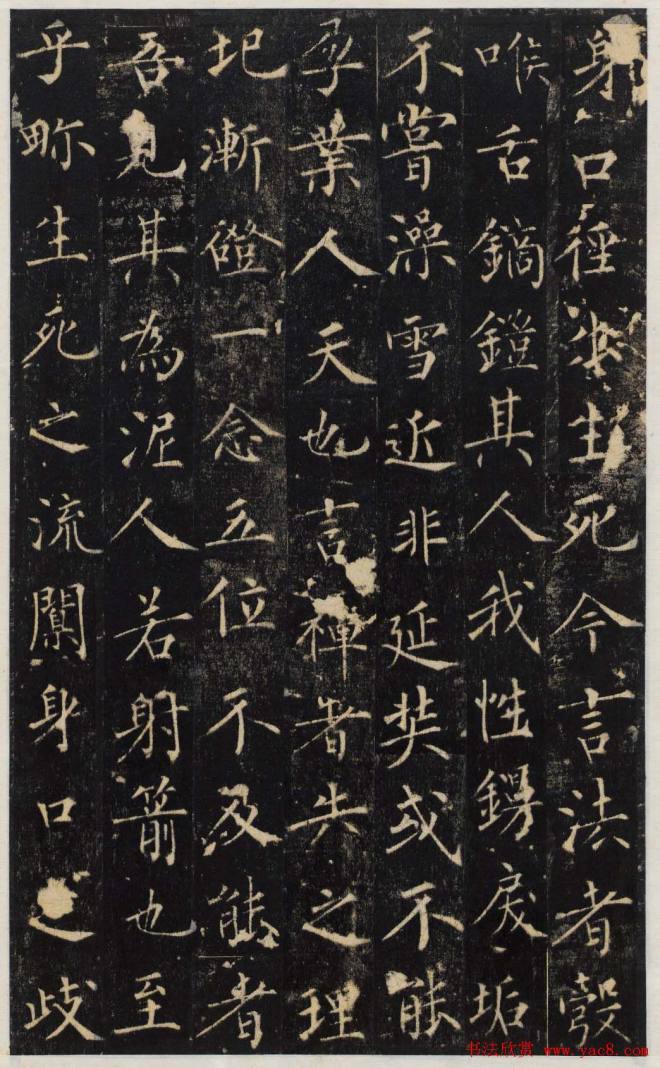 身口徑步生死今言法者彀
喉舌鏑鎧其人我性鍔戾垢
不嘗澡雪近非延奘或不能
孚業人天也言禪者失之理
圯漸磴一念五位不及能者
吾見其為泥人若射箭也至
乎畛生死之流闑身口之歧
书法欣赏 www.yac8.com